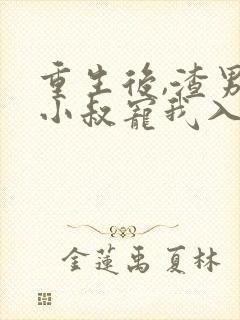 重生後,渣男
小叔寵我入
金蓮禹夏林